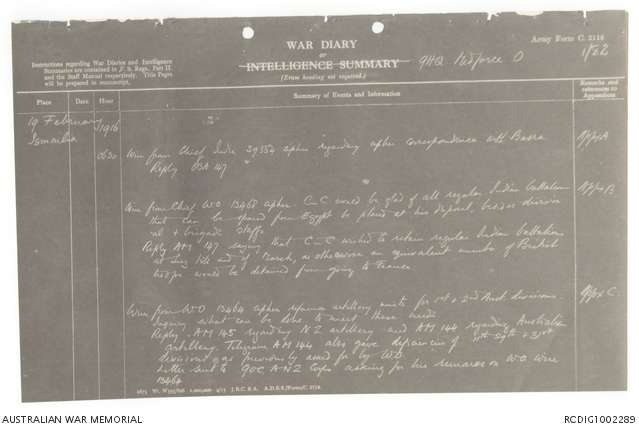 Army Form C. 2118
WAR DIARY
or
INTELLIGENCE SUMMARY
(Erase heading not required.)
GHQ Medforce D
1/22
Instructions regarding War Diaries and Intelligence
Summaries are contained in F. S. Regs., Part II.
and the Staff Manual respectively. Title Pages
will be prepared in manuscript.
Place Date Hour Summary of Events and Information Remarks and references to Appendices
19 February
1916
Ismailia
0630 Wire from Chief India 29354 cipher regarding cipher correspondence with Basra
Reply 147
Wire from Chief W.O 13468 cipher C-C would be glad of all regular Indian battalions
that can be spared from Egypt be placed at his disposal, besides division
al + brigade staffs
Reply AM 147 saying that C-C wished to retain regular Indian battalions
at until end of March, as otherwise an equivalent number of British
troops would be detained from going to France
Wire from W.O 13464 cipher artillery units for 1st & 2nd Aust. Divisions.
what can be done to meet these needs
Reply. AM 145 regarding N.Z artillery and AM 144 regarding Australian
artillery. Telegram AM 144 also gives deficiencies of 29th + 31st
divisions a.a.a. previously asked for by W.O
Letter sent to GOC A.N.Z Corps asking for his remarks on W.O wire
13464
App. A
App. B
App. C.
1875 Wt. W593/826 1,000,000 4/15 J.B.C. & A. A.D.S.S./Forms/C. 2118.
AUSTRALIAN WAR MEMORIAL
RCDIG1002289